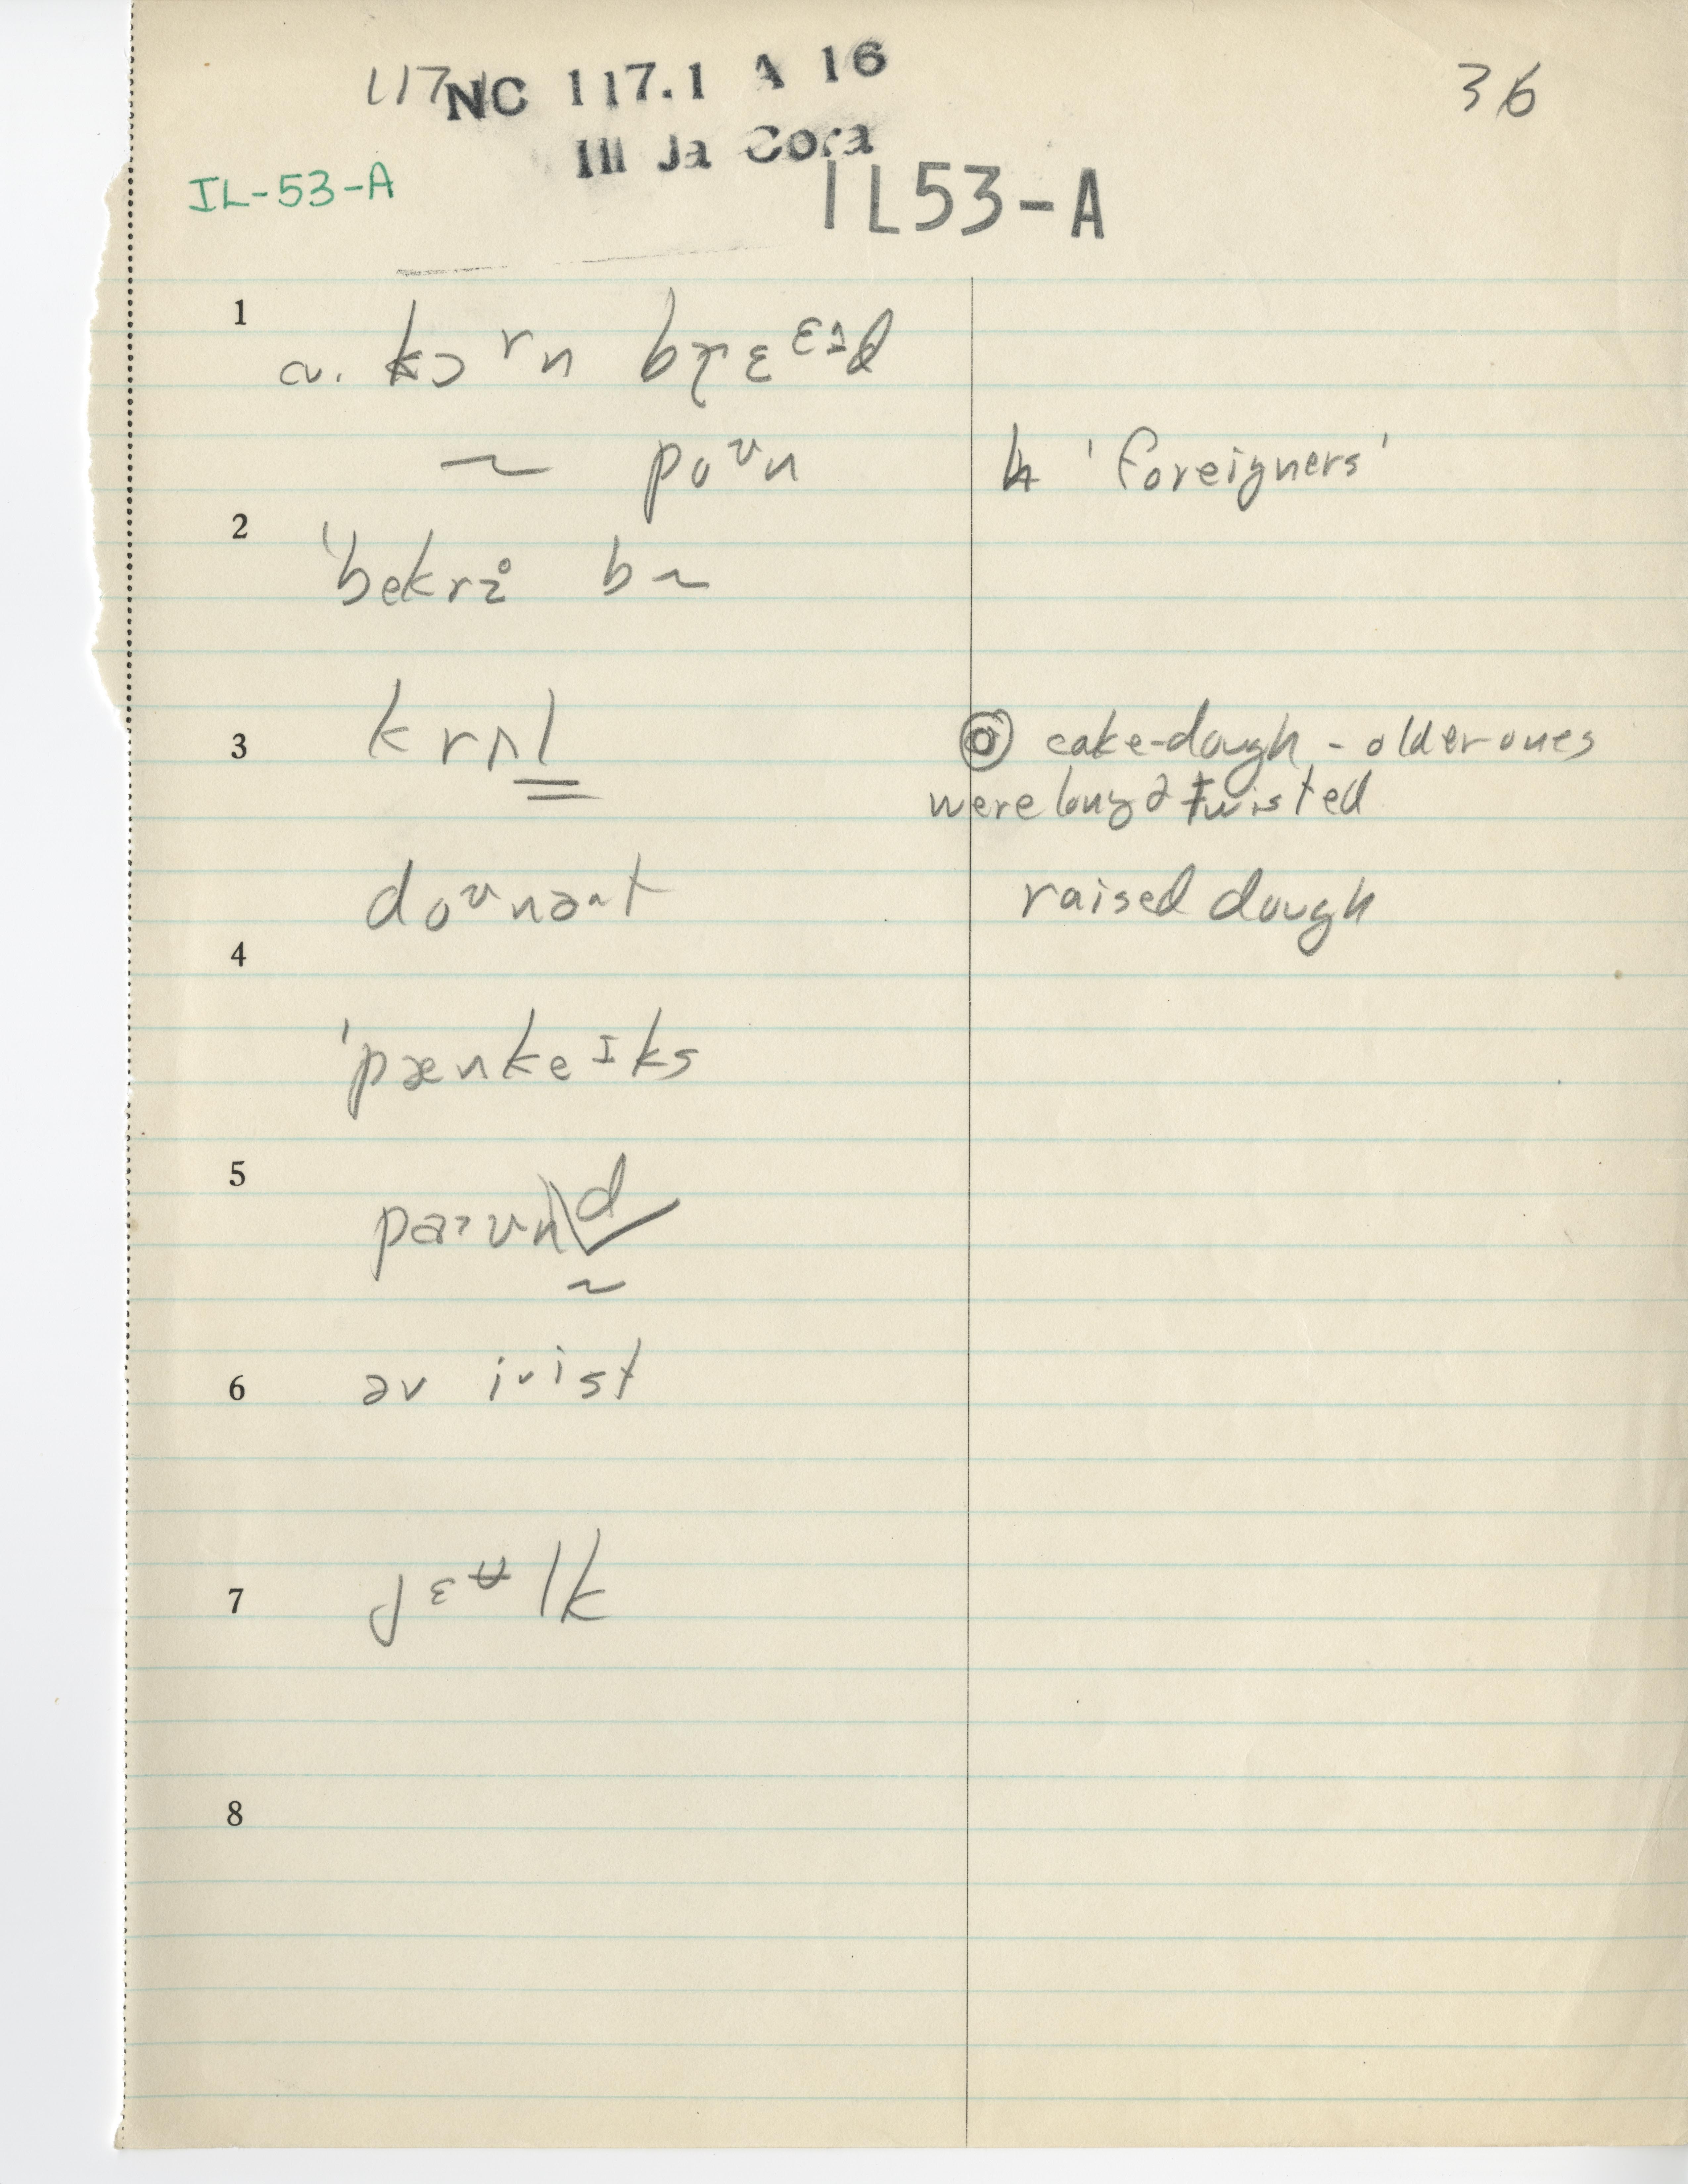 117 NC 117.1 A 16
36
Ill Ja Cora
IL-53-A
IL53-A
1
a. kɔʳn brɛᵋᶦd
~ poᶹn
h 'foreigners'
2
ˈbekri b~
3
krʌl
cake-dough - older ones
were long & twisted
doᶹnət
raised dough
4
ˈpænkeᶦks
5
paᶹnd
~
6
əv iˇist
7
jɛᶶlk
8